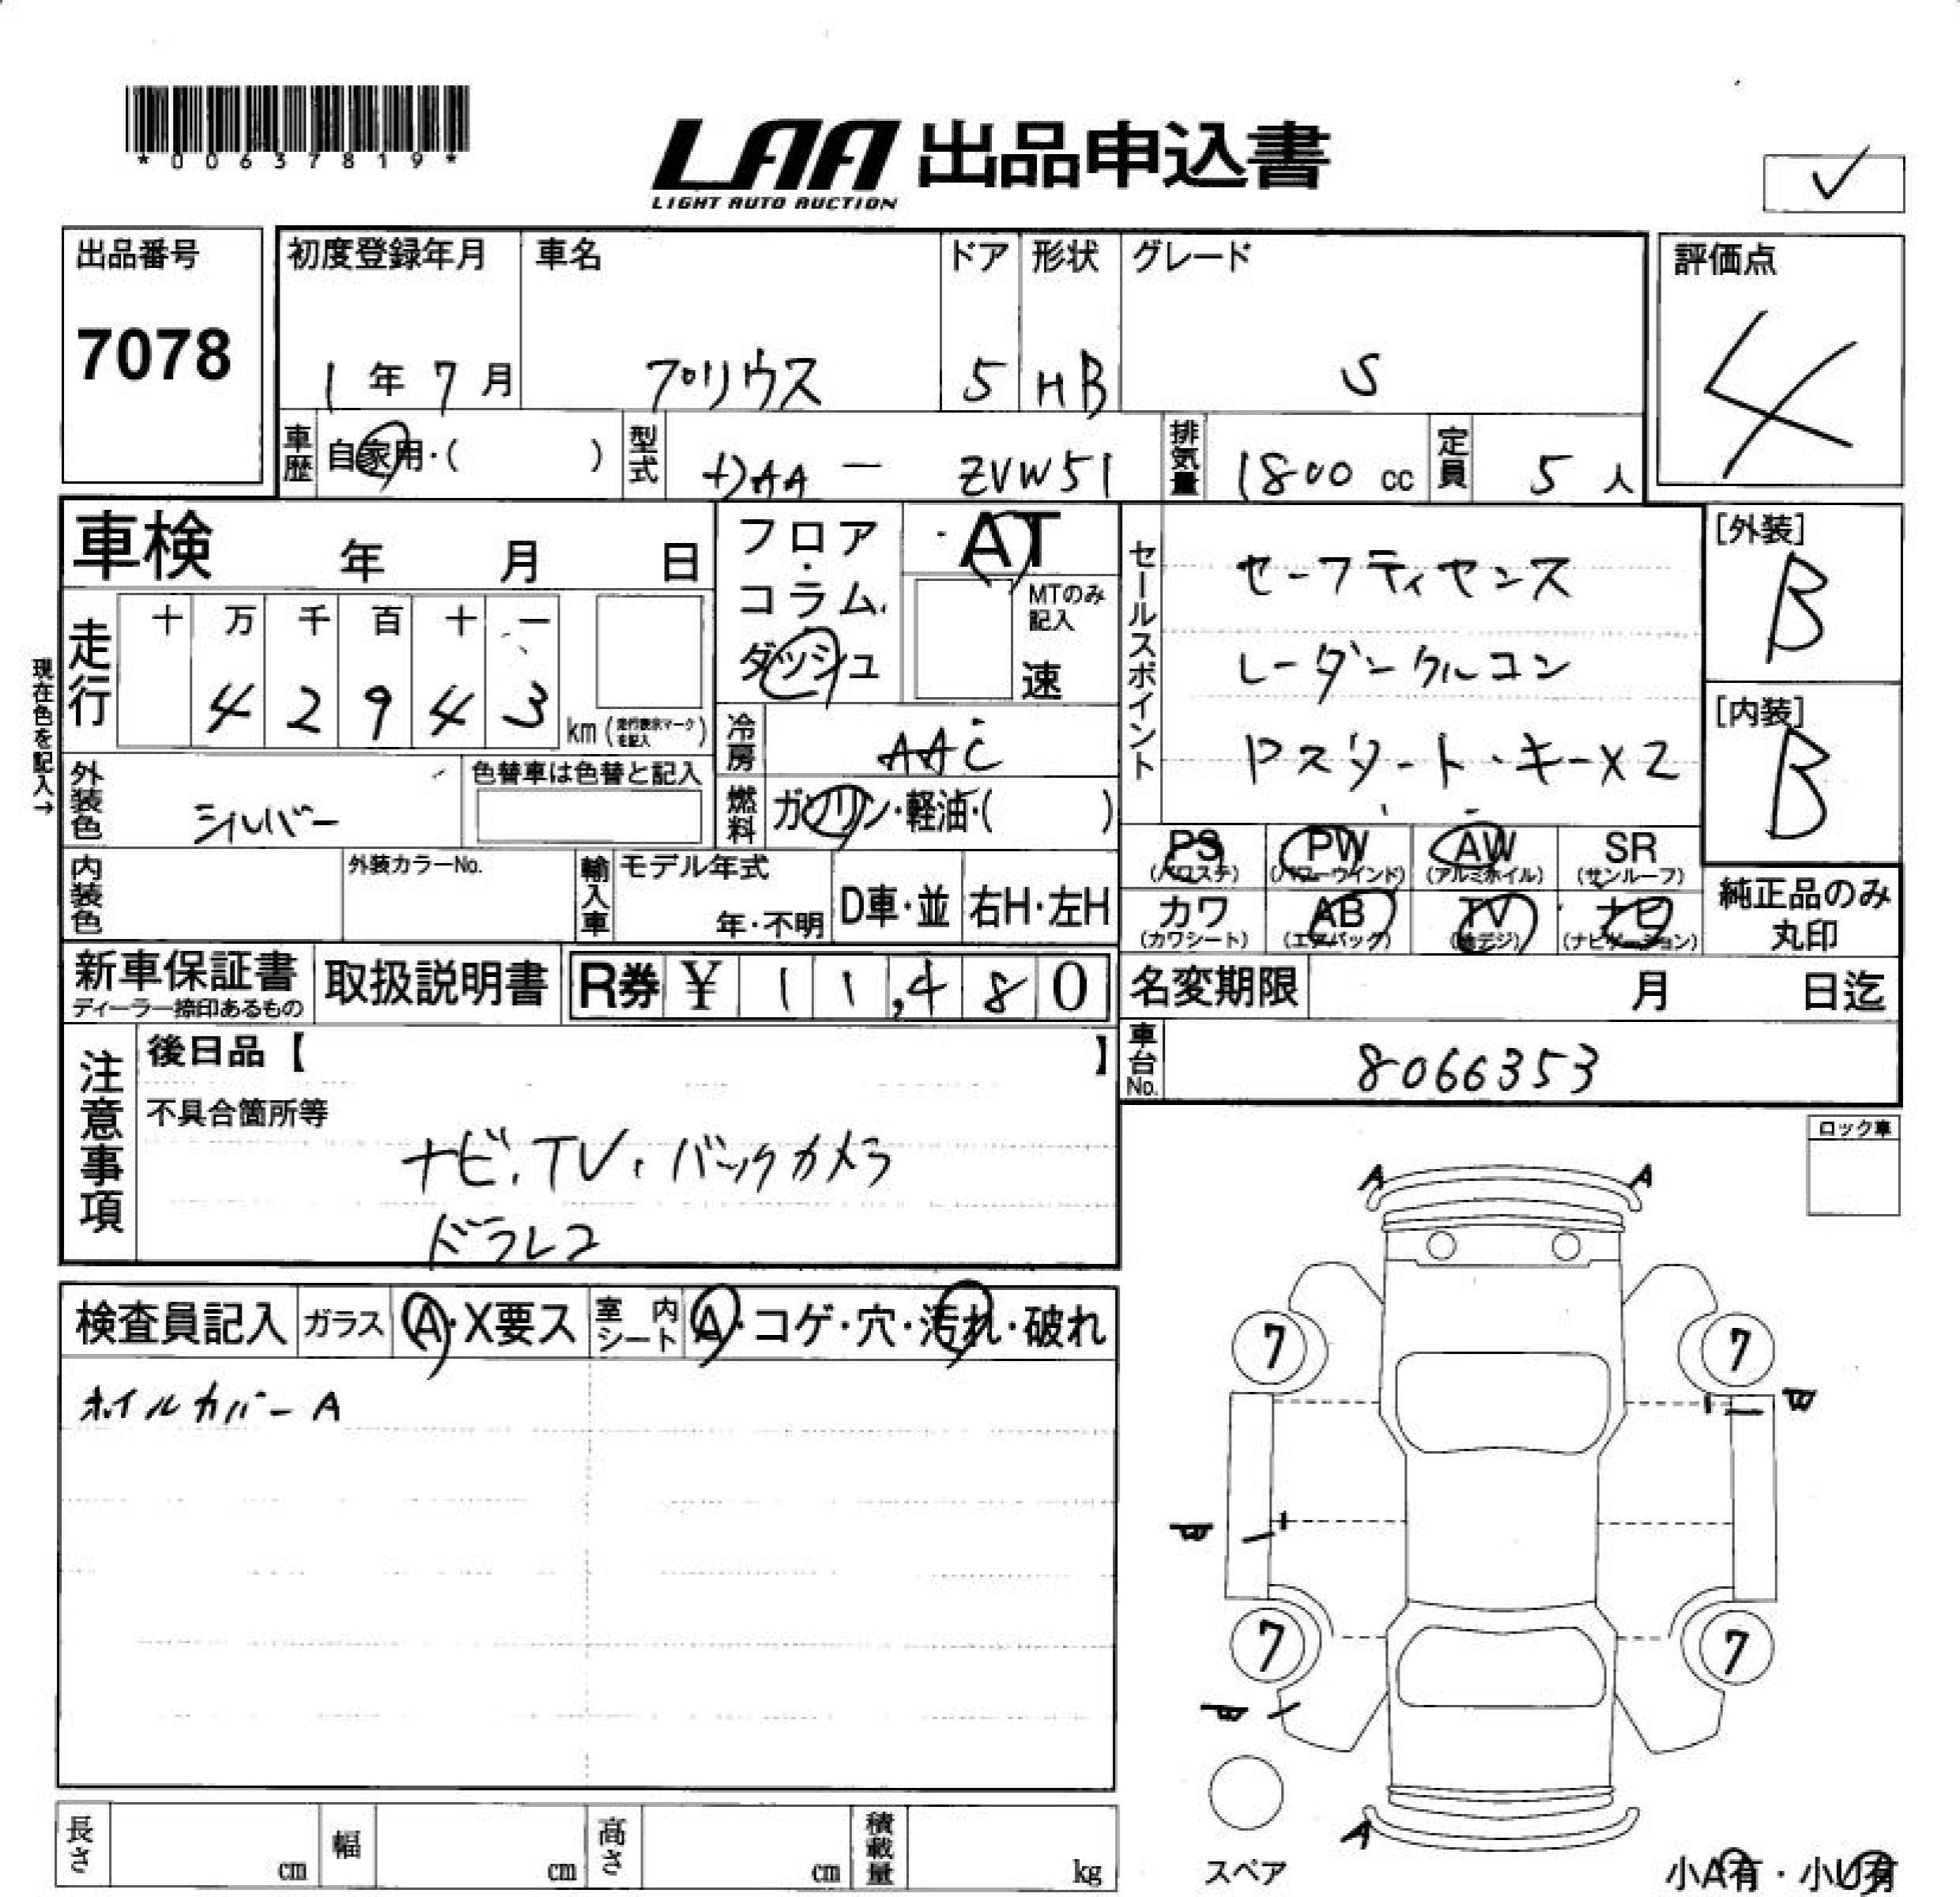 *00637819*
LAA 出品申込書
LIGHT AUTO AUCTION
✓
出品番号
7078
初度登録年月
1年 7月
車名
プリウス
ドア
5
形状
HB
グレード
S
評価点
4
車歴 自家用・( )
型式 DAA - ZVW51
排気量 1800 cc
定員 5 人
車検 年 月 日
現在色を記入→
走行
十 万 千 百 十 一
4 2 9 4 3 km (走行表示マークを記入)
フロア・コラム・ダッシュ
AT
MTのみ記入
速
セールスポイント
セーフティセンス
レーダークルコン
Pスタート・キーX2
[外装]
B
[内装]
B
外装色 シルバー
色替車は色替と記入
冷房 AAC
燃料 ガソリン・軽油・( )
内装色
外装カラーNo.
輸入車 モデル年式
年・不明
D車・並
右H・左H
PS (パワステ)
PW (パワーウインド)
AW (アルミホイル)
SR (サンルーフ)
カワ (カワシート)
AB (エアバック)
TV (地デジ)
ナビ (ナビゲーション)
純正品のみ
丸印
新車保証書
ディーラー捺印あるもの
取扱説明書
R券 ¥ 11,480
名変期限 月 日迄
車台No. 8066353
注意事項
後日品【 】
不具合箇所等
ナビ・TV・バックカメラ
ドラレコ
ロック車
検査員記入
ガラス A・X要ス
室内シート A・コゲ・穴・汚れ・破れ
ホイルカバーA
A A
7 7
B
B
7 7
B
A
スペア
長さ cm
幅 cm
高さ cm
積載量 kg
小A有・小U有